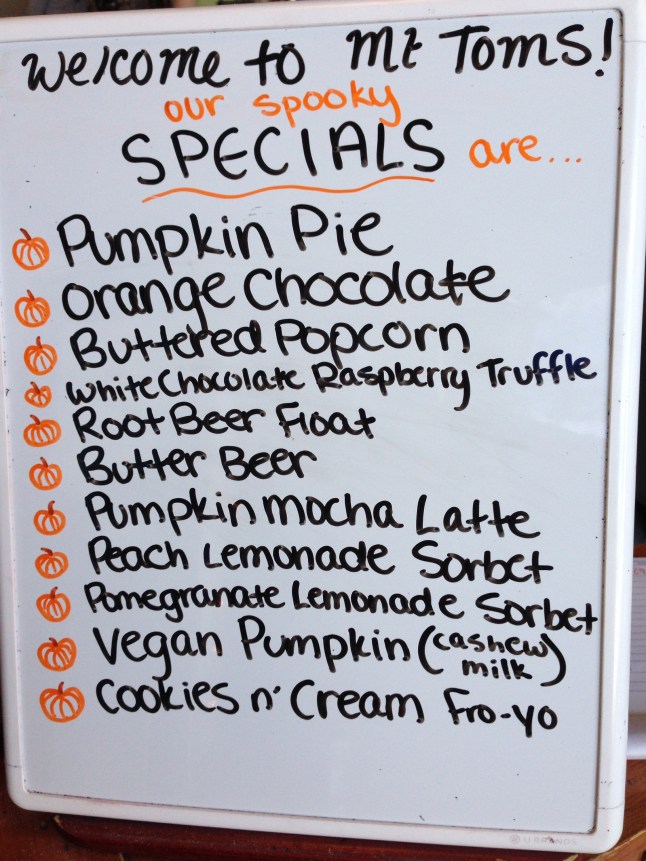 Welcome to Mt Toms!
our spooky
SPECIALS are...
Pumpkin Pie
Orange Chocolate
Buttered Popcorn
White Chocolate Raspberry Truffle
Root Beer Float
Butter Beer
Pumpkin Mocha Latte
Peach Lemonade Sorbet
Pomegranate Lemonade Sorbet
Vegan Pumpkin (cashew milk)
Cookies n' Cream Fro-yo
U BRANDS